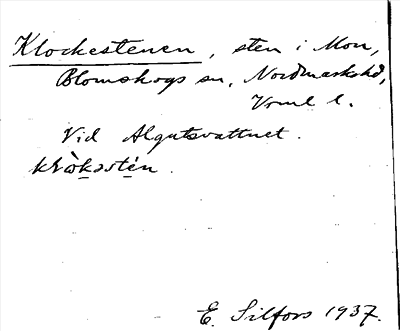 Klockestenen, sten i Mon,
Blomskogs sn, Nordmarkshd,
Vrml l.
Vid Algutsvattnet.
E. Silfors 1937.